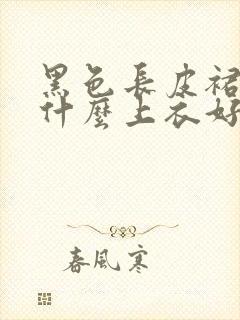 黑色長皮裙
什麼上衣好
春風寒